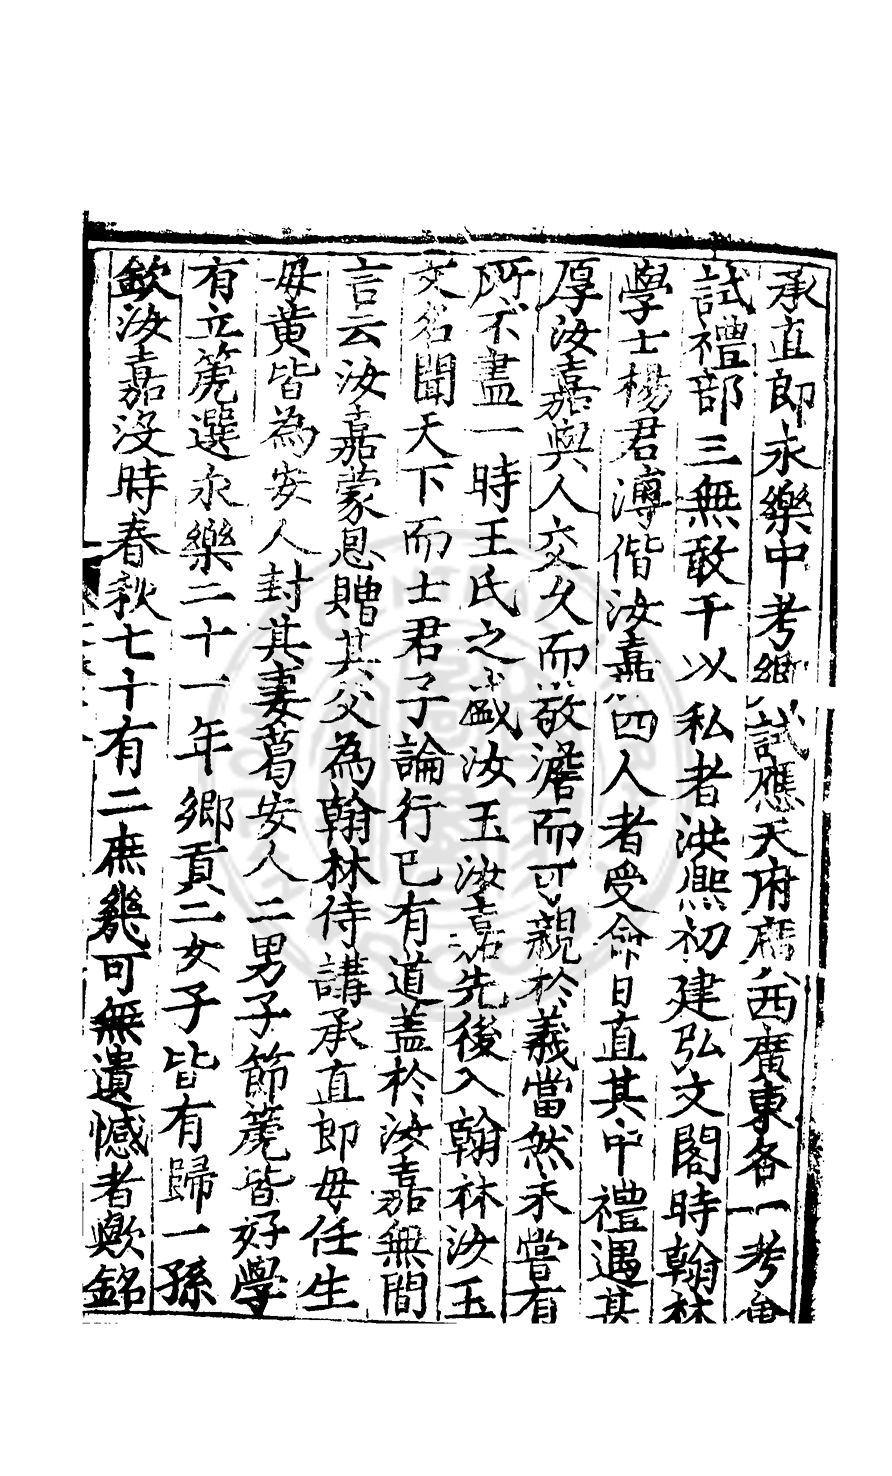 承直郎永樂中考鄉試應天府廣西廣東各一考會
試禮部三無敢干以私者洪熙初建弘文閣時翰林
學士楊君溥偕汝嘉四人者受命日直其中禮遇甚
厚汝嘉與人交久而敬澹而可親於義當然未嘗有
所不盡一時王氏之盛汝玉汝嘉先後入翰林汝玉
文名聞天下而士君子論行已有道蓋於汝嘉無間
言云汝嘉蒙恩贈其父為翰林侍講承直郎母任生
母黃皆為安人封其妻葛安人二男子節箎皆好學
有立箎選永樂二十一年鄉貢二女子皆有歸一孫
欽汝嘉沒時春秋七十有二庶幾可無遺憾者歟銘